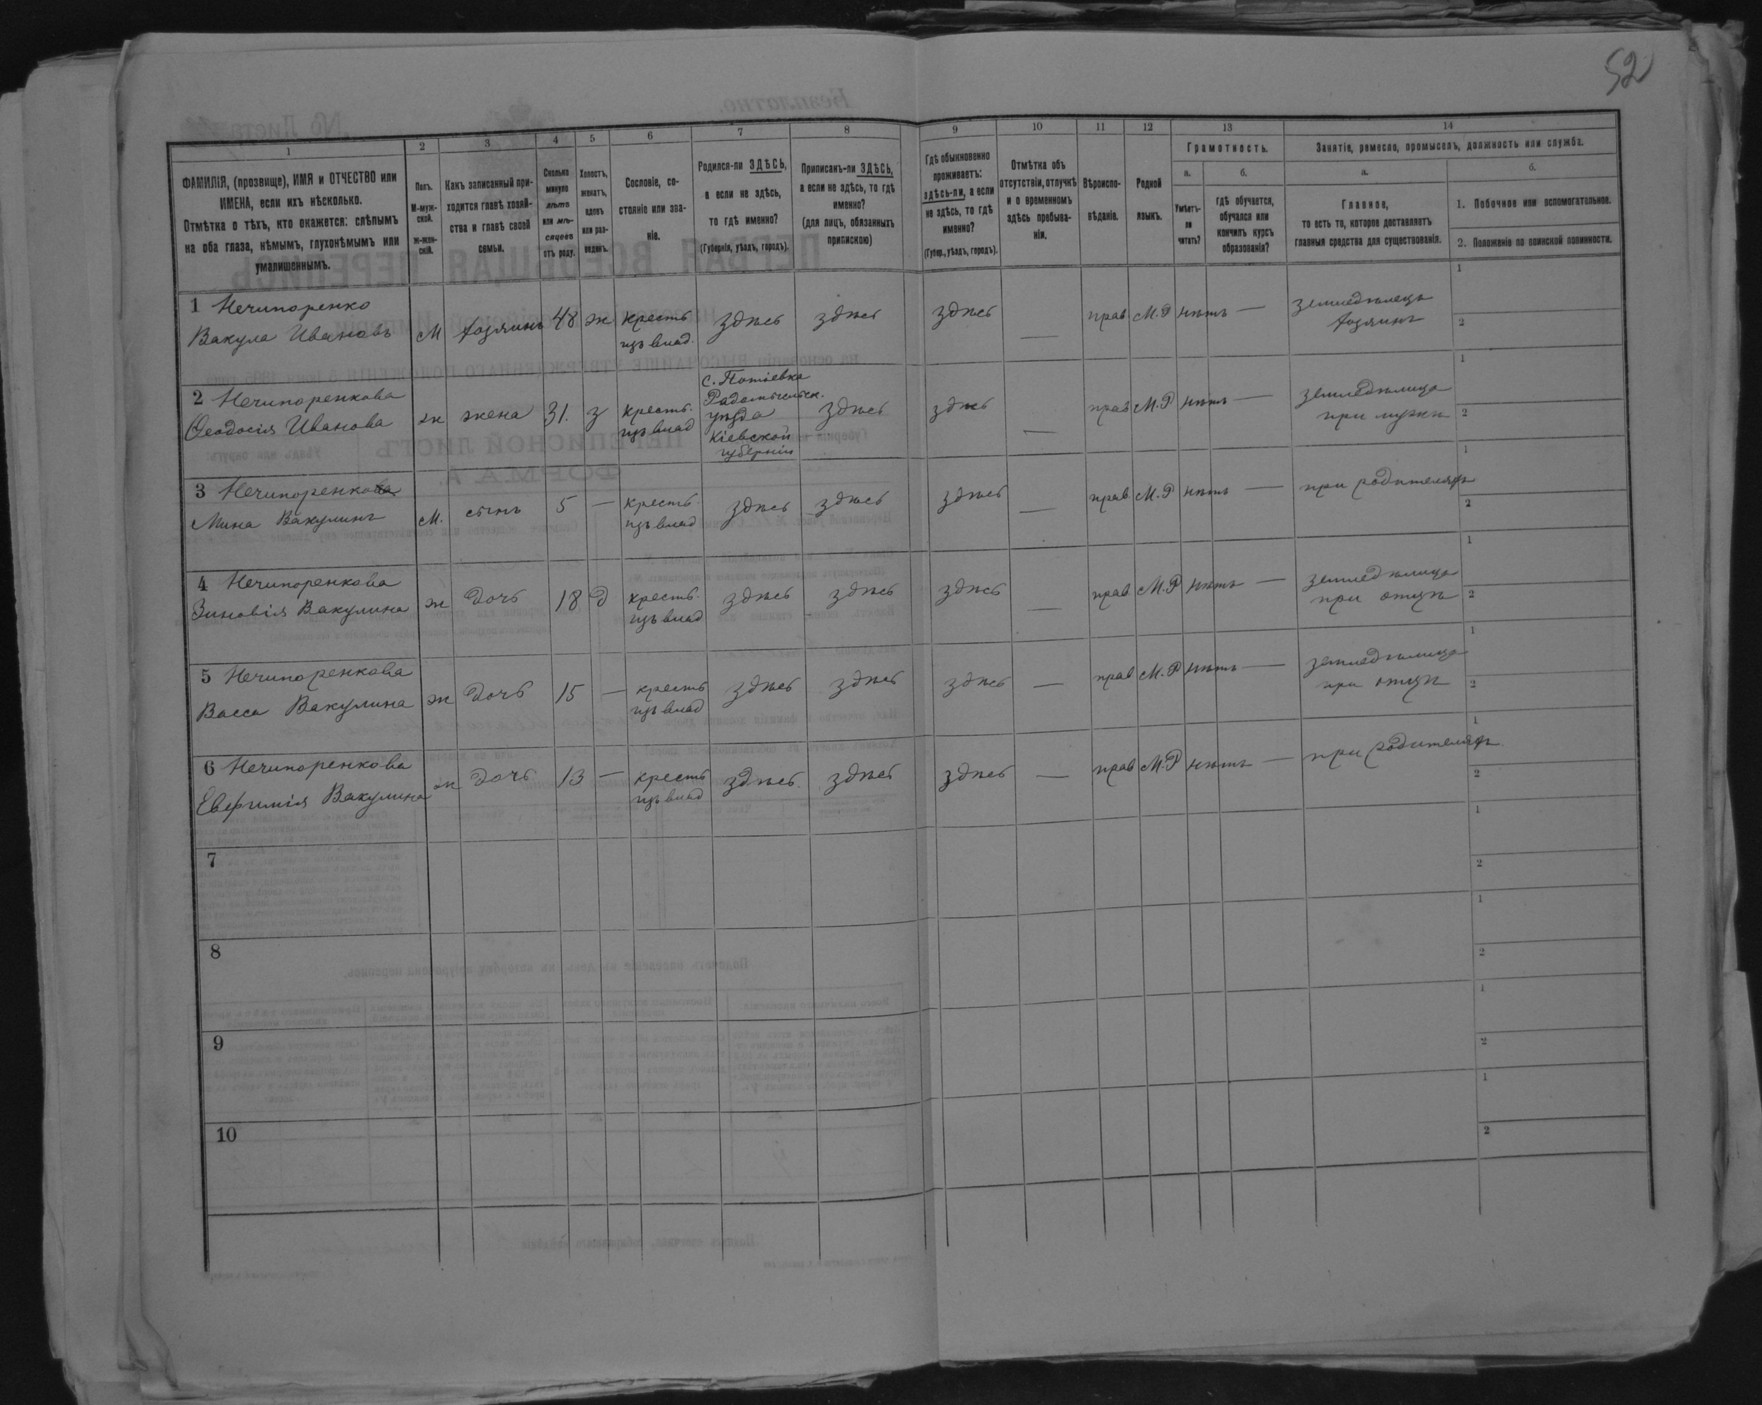 52
1 2 3 4 5 6 7 8 9 10 11 12 13 14
ФАМИЛІЯ, (прозвище), ИМЯ и ОТЧЕСТВО или
ИМЕНА, если ихъ нѣсколько.
Отмѣтка о тѣхъ, кто окажется: слѣпымъ
на оба глаза, нѣмымъ, глухонѣмымъ или
умалишеннымъ.
Полъ.
М-муж-
ской.
ж-жен-
скій.
Какъ записанный при-
ходится главѣ хозяй-
ства и главѣ своей
семьи.
Сколько
минуло
лѣтъ
или мѣ-
сяцевъ
отъ роду.
Холостъ,
женатъ,
вдовъ
или раз-
веденъ.
Сословіе, со-
стояніе или зва-
ніе.
Родился-ли ЗДѢСЬ,
а если не здѣсь,
то гдѣ именно?
(Губернія, уѣздъ, городъ).
Приписанъ-ли ЗДѢСЬ,
а если не здѣсь, то гдѣ
именно?
(для лицъ, обязанныхъ
припискою)
Гдѣ обыкновенно
проживаетъ:
здѣсь-ли, а если
не здѣсь, то гдѣ
именно?
(Губер., уѣздъ, городъ).
Отмѣтка объ
отсутствіи, отлучкѣ
и о временномъ
здѣсь пребыва-
ніи.
Вѣроиспо-
вѣданіе.
Родной
языкъ.
Грамотность.
а.
Умѣетъ-
ли
читать?
б.
гдѣ обучается,
обучался или
кончилъ курсъ
образованія?
Занятіе, ремесло, промыселъ, должность или служба.
а.
Главное,
то есть то, которое доставляетъ
главныя средства для существованія.
б.
1. Побочное или вспомогательное.
2. Положеніе по воинской повинности.
1 Нечипоренко
Вакула Ивановъ
м хозяинъ 48 ж кресть
изъ влад.
здѣсь здѣсь здѣсь — прав М.Р нѣтъ —
земледѣлецъ
хозяинъ
1
2
2 Нечипоренкова
Ѳеодосія Иванова
ж жена 31. з кресть.
изъ влад
с. Потіевка
Радомысльск.
уѣзда
Кіевской
губерніи
здѣсь здѣсь — прав М.Р нѣтъ —
земледѣлица
при мужѣ
1
2
3 Нечипоренкова
Мина Вакулинъ
м. сынъ 5 — кресть
изъ влад
здѣсь здѣсь здѣсь — прав М.Р нѣтъ —
при родителяхъ
1
2
4 Нечипоренкова
Зиновія Вакулина
ж дочь 18 д кресть.
изъ влад
здѣсь здѣсь здѣсь — прав М.Р нѣтъ —
земледѣлица
при отцѣ
1
2
5 Нечипоренкова
Васса Вакулина
ж дочь 15 — кресть
изъ влад
здѣсь здѣсь здѣсь — прав М.Р нѣтъ —
земледѣлица
при отцѣ
1
2
6 Нечипоренкова
Евфимія Вакулина
ж дочь 13 — кресть
изъ влад
здѣсь здѣсь здѣсь — прав М.Р нѣтъ —
при родителяхъ
1
2
7
1
2
8
1
2
9
1
2
10
1
2